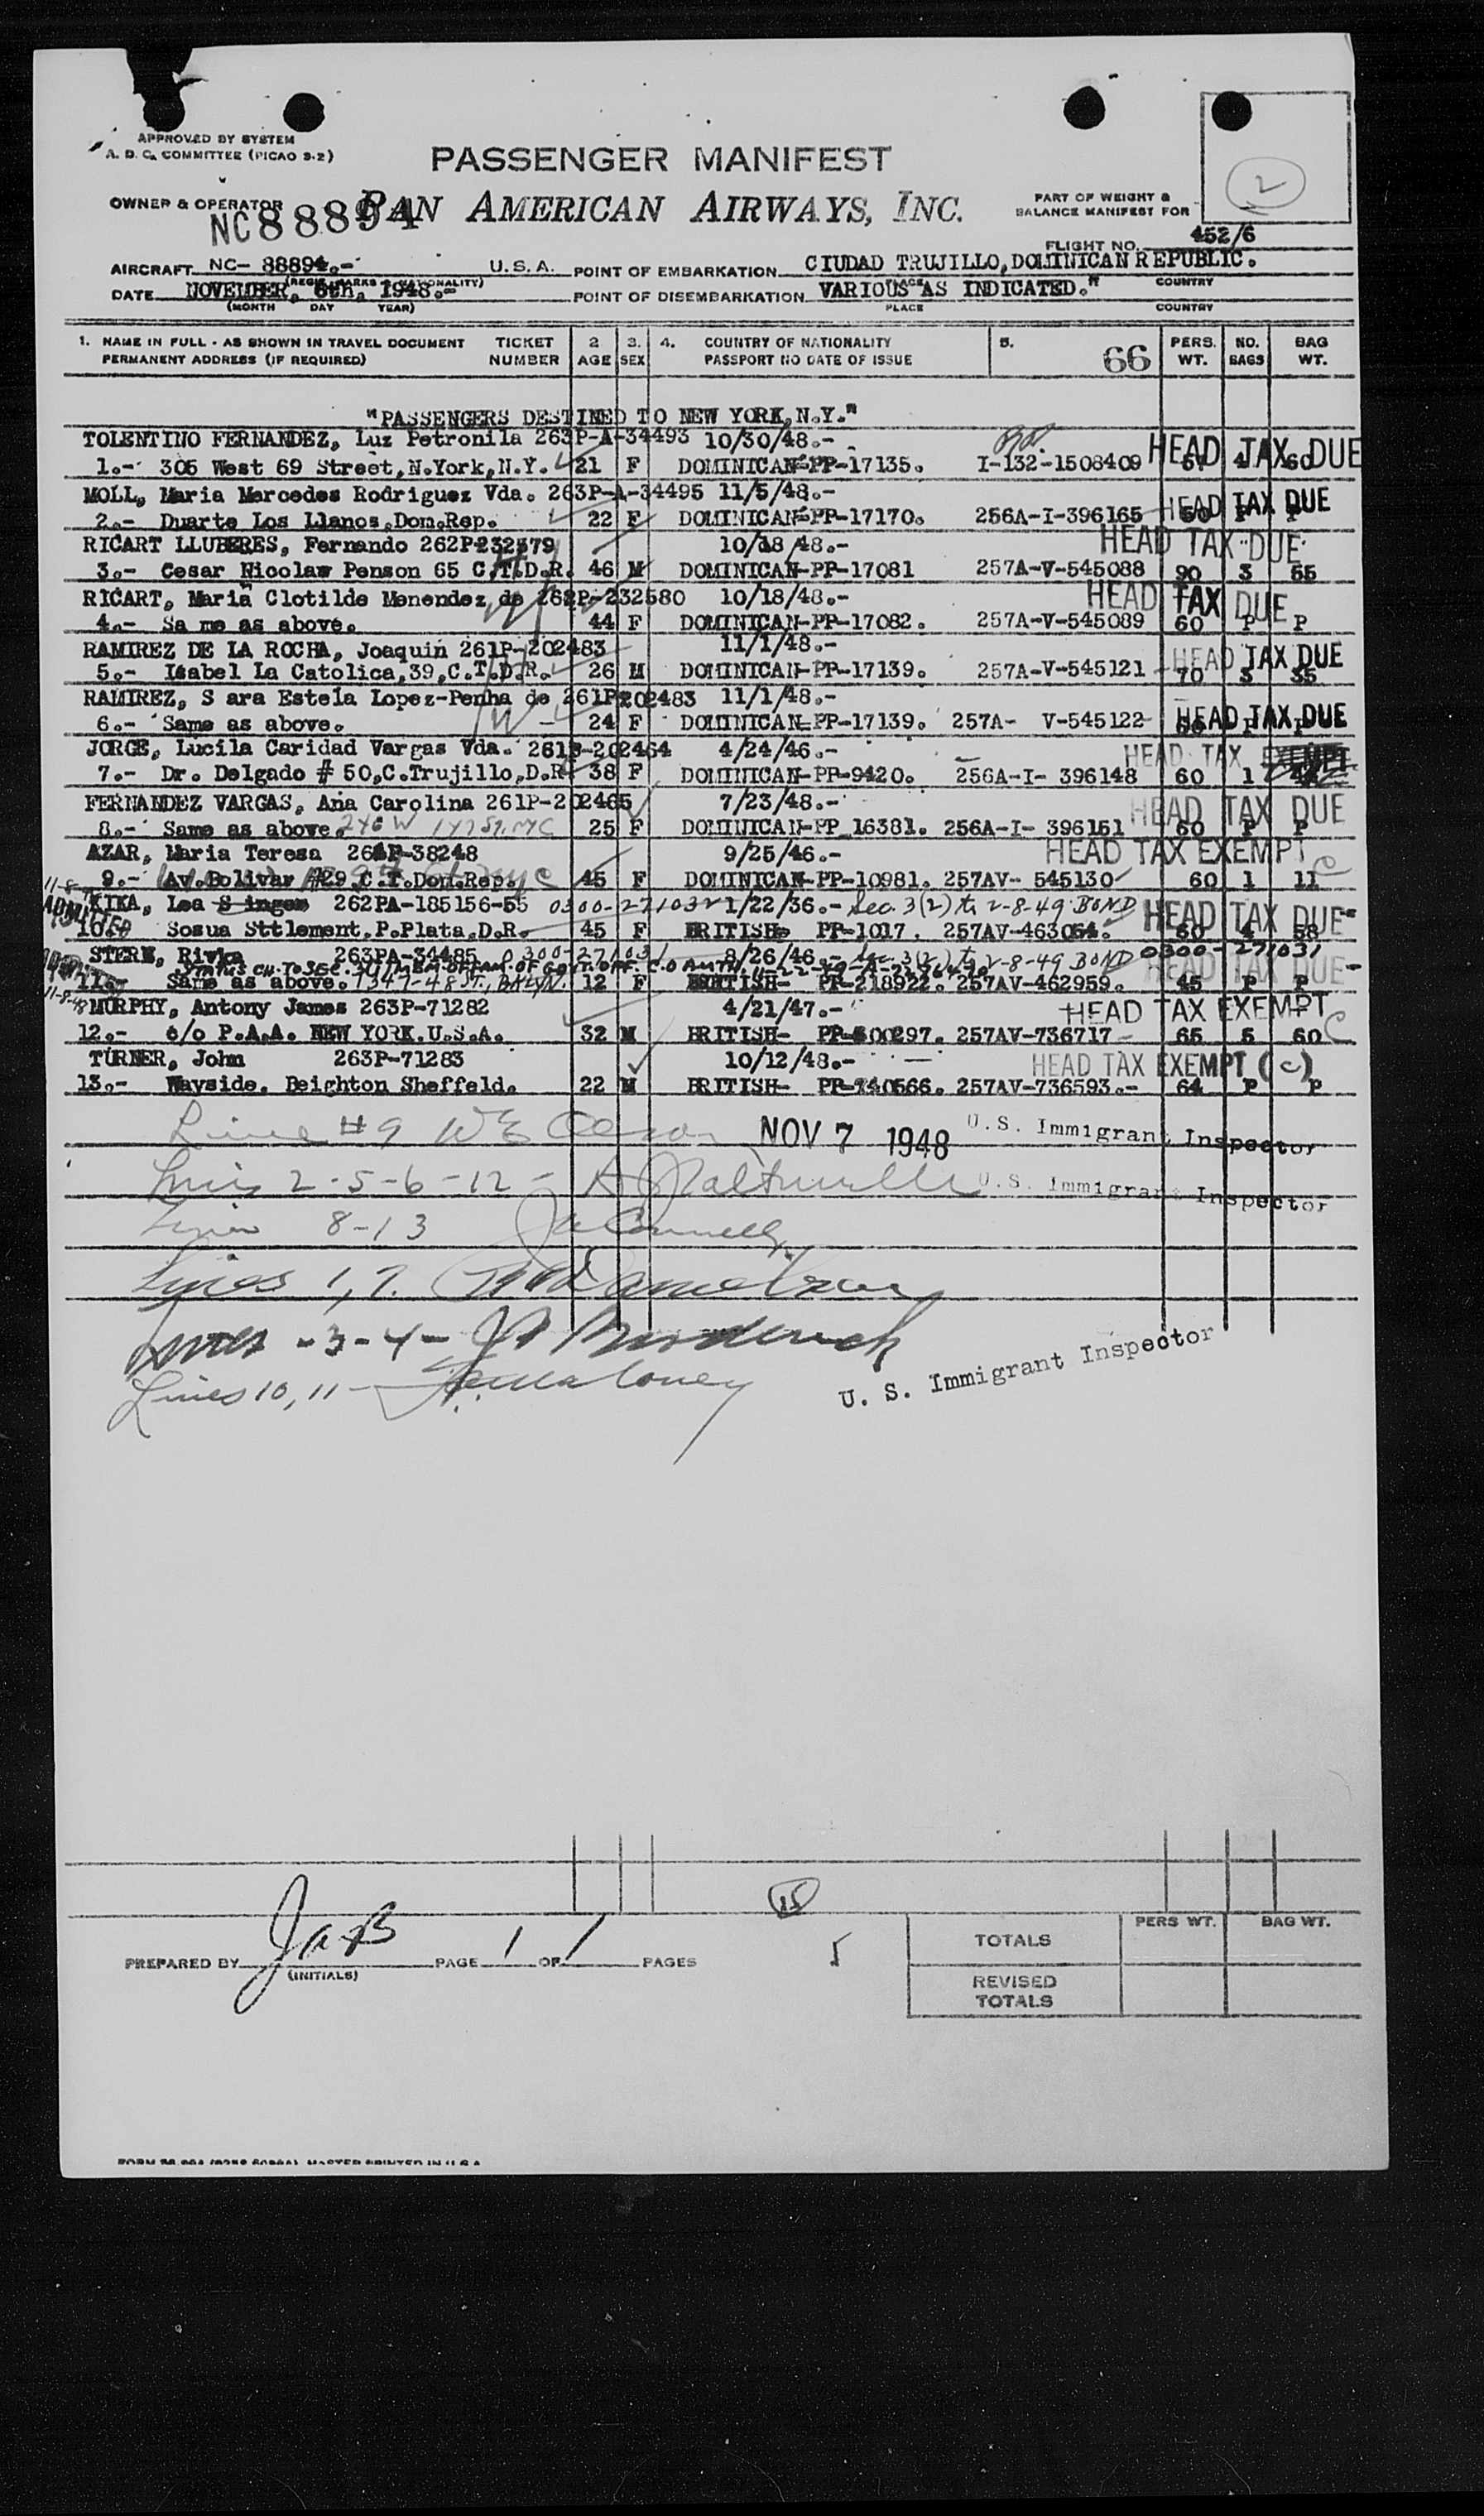 APPROVED BY SYSTEM
A. D. C. COMMITTEE (PICAO S-2)
PASSENGER MANIFEST
2
OWNER & OPERATOR PAN AMERICAN AIRWAYS, INC.
NC88894
PART OF WEIGHT &
BALANCE MANIFEST FOR
FLIGHT NO. 452/6
AIRCRAFT NC- 88894.- U.S.A. POINT OF EMBARKATION CIUDAD TRUJILLO, DOMINICAN REPUBLIC.
DATE NOVEMBER, 6th, 1948.- POINT OF DISEMBARKATION VARIOUS "AS INDICATED." COUNTRY
(MONTH DAY YEAR) PLACE COUNTRY
1. NAME IN FULL - AS SHOWN IN TRAVEL DOCUMENT TICKET 2 3. 4. COUNTRY OF NATIONALITY 5. 66 PERS. NO. BAG
PERMANENT ADDRESS (IF REQUIRED) NUMBER AGE SEX PASSPORT NO DATE OF ISSUE WT. BAGS WT.
"PASSENGERS DESTINED TO NEW YORK, N.Y."
TOLENTINO FERNANDEZ, Luz Petronila 263P-A-34493 10/30/48.- HEAD TAX DUE
1.- 305 West 69 Street, N.York, N.Y. 21 F DOMINICAN-PP-17135. I-132-1508409 4 60
MOLL, Maria Mercedes Rodriguez Vda. 263P-A-34495 11/5/48.- HEAD TAX DUE
2.- Duarte Los Llanos, Dom.Rep. 22 F DOMINICAN-PP-17170. 256A-I-396165 P P
RICART LLUBERES, Fernando 262P-232579 10/18/48.- HEAD TAX DUE
3.- Cesar Nicolaw Penson 65 C.T.D.R. 46 M DOMINICAN-PP-17081 257A-V-545088 90 3 55
RICART, Maria Clotilde Menendez de 262P-232580 10/18/48.- HEAD TAX DUE
4.- Sa me as above. 44 F DOMINICAN-PP-17082. 257A-V-545089 60 P P
RAMIREZ DE LA ROCHA, Joaquin 261P-202483 11/1/48.- HEAD TAX DUE
5.- Isabel La Catolica, 39, C.T.D.R. 26 M DOMINICAN-PP-17139. 257A-V-545121 70 3 35
RAMIREZ, S ara Estela Lopez-Penha de 261P-202483 11/1/48.-
6.- Same as above. 24 F DOMINICAN-PP-17139. 257A- V-545122 HEAD TAX DUE
JORGE, Lucila Caridad Vargas Vda. 261P-202464 4/24/46.- HEAD TAX EXEMPT
7.- Dr. Delgado # 50, C.Trujillo, D.R. 38 F DOMINICAN-PP-9420. 256A-I- 396148 60 1
FERNANDEZ VARGAS, Ana Carolina 261P-202465 7/23/48.- HEAD TAX DUE
8.- Same as above. 25 F DOMINICAN-PP 16381. 256A-I- 396151 60 P P
AZAR, Maria Teresa 38248 9/25/46.- HEAD TAX EXEMPT C
9.- Av.Bolivar #29, C.T.Dom.Rep. 45 F DOMINICAN-PP-10981. 257AV- 545130 60 1 11
KIKA, Lea Singer 262PA-185156-55 0300-271032 1/22/36.- Sec. 3(2) to 2-8-49 BOND HEAD TAX DUE
ADMITTED 10.- Sosua Sttlement, P.Plata, D.R. 45 F BRITISH- PP-1017. 257AV-463054. 60 4 58
STERN, Rivka 263PA-34485 0300-271031 8/26/46.- Sec. 3(2) to 2-8-49 BOND 0300-271031
11.- Same as above. 1347-48 ST., BKLYN. 12 F BRITISH- PP-218922. 257AV-462959. HEAD TAX DUE 45 P P
11-8-48 MURPHY, Antony James 263P-71282 4/21/47.- HEAD TAX EXEMPT
12.- c/o P.A.A. NEW YORK. U.S.A. 32 M BRITISH- 257AV-736717 65 5 60 C
TURNER, John 263P-71283 10/12/48.- HEAD TAX EXEMPT (C)
13.- Wayside. Beighton Sheffeld. 22 M BRITISH- 257AV-736593.- 64 P P
Line #9 NOV 7 1948 U.S. Immigrant Inspector
Lines 2-5-6-12 - U.S. Immigrant Inspector
Lines 8-13
Lines 1, 7.
Lines -3-4-
Lines 10, 11 - U. S. Immigrant Inspector
PREPARED BY JaB PAGE 1 OF 1 PAGES
(INITIALS)
PERS WT. BAG WT.
TOTALS
REVISED
TOTALS